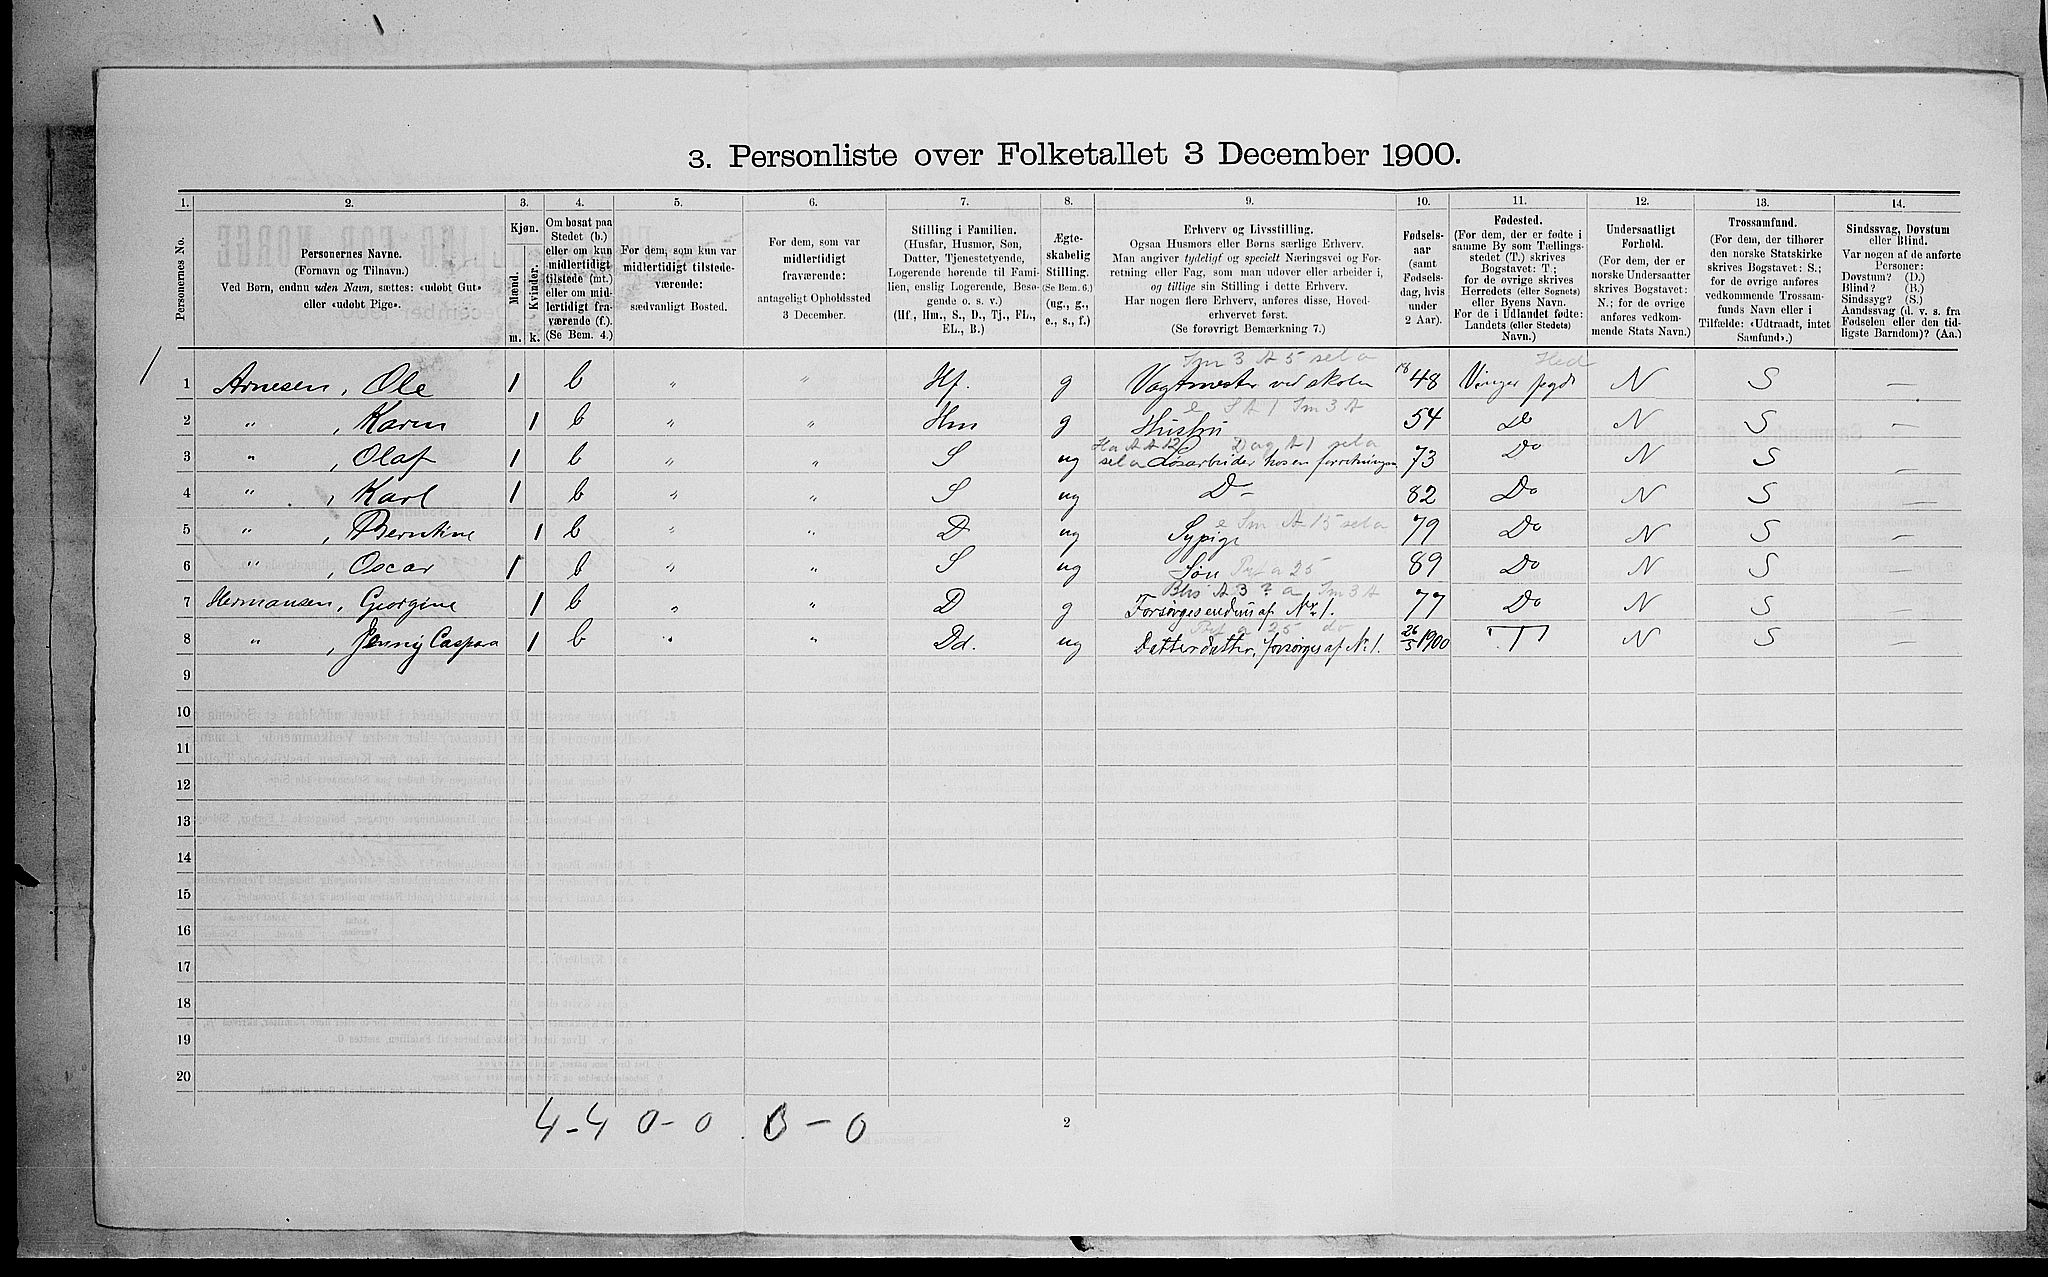 3. Personliste over Folketallet 3 December 1900.
1. 2. 3. 4. 5. 6. 7. 8. 9. 10. 11. 12. 13. 14.
Personernes No.
Personernes Navne.
(Fornavn og Tilnavn.)
Ved Børn, endnu uden Navn, sættes: «udøbt Gut»
eller «udøbt Pige».
Kjøn.
Mænd.
Kvinder.
m. k.
Om bosat paa
Stedet (b.)
eller om kun
midlertidigt
tilstede (mt.)
eller om mid-
lertidigt fra-
værende (f.).
(Se Bem. 4.)
For dem, som kun var
midlertidigt tilstede-
værende:
sædvanligt Bosted.
For dem, som var
midlertidigt
fraværende:
antageligt Opholdssted
3 December.
Stilling i Familien.
(Husfar, Husmor, Søn,
Datter, Tjenestetyende,
Logerende hørende til Fami-
lien, enslig Logerende, Besø-
gende o. s. v.)
(Hf., Hm., S., D., Tj., FL.,
EL., B.)
Ægte-
skabelig
Stilling.
(Se Bem. 6.)
(ug., g.,
e., s., f.)
Erhverv og Livsstilling.
Ogsaa Husmors eller Børns særlige Erhverv.
Man angiver tydeligt og specielt Næringsvei og For-
retning eller Fag, som man udøver eller arbeider i,
og tillige sin Stilling i dette Erhverv.
Har nogen flere Erhverv, anføres disse, Hoved-
erhvervet først.
(Se forøvrigt Bemærkning 7.)
Fødsels-
aar
(samt
Fødsels-
dag, hvis
under
2 Aar).
Fødested.
(For dem, der er fødte i
samme By som Tællings-
stedet (T.) skrives
Bogstavet: T.;
for de øvrige skrives
Herredets (eller Sognets)
eller Byens Navn.
For de i Udlandet fødte:
Landets (eller Stedets)
Navn.)
Undersaatligt
Forhold.
(For dem, der er
norske Undersaatter
skrives Bogstavet:
N.; for de øvrige
anføres vedkom-
mende Stats Navn.)
Trossamfund.
(For dem, der tilhører
den norske Statskirke
skrives Bogstavet: S.;
for de øvrige anføres
vedkommende Trossam-
funds Navn eller i
Tilfælde: «Udtraadt, intet
Samfund».)
Sindssvag, Døvstum
eller Blind.
Var nogen af de anførte
Personer:
Døvstum? (D.)
Blind? (B.)
Sindssyg? (S.)
Aandssvag (d. v. s. fra
Fødselen eller den tid-
ligste Barndom)? (Aa.)
Sm 3 A 5 sela Hed
1 Arnesen, Ole 1 b " " Hf. g Vagtmester ved skolen 18 48 Vinger pgd N S —
e S A 1 Sm 3 A
2 " , Karen 1 b " " Hm g Hustru 54 Do N S —
3 " , Olaf 1 b " " S ug Løsarbeider hos en forretningsm 73 Do N S —
4 " , Karl 1 b " " S ug D— 82 Do N S —
e Sm A 15 sela
5 " , Berntine 1 b " " D ug Sypige 79 Do N S —
6 " , Oscar 1 b " " S ug Søn 89 Do N S —
7 Hermansen, Georgine 1 b " " D g Forsørgesendnu af No 1. 77 Do N S —
8 " , Jenny Caspara 1 b " " Dd. ug Datterdatter, forsørges af No 1. 26/5 1900 T N S —
9
10
11
12
13
14
15
16
17
18
19
20
4-4 0-0 0-0
2